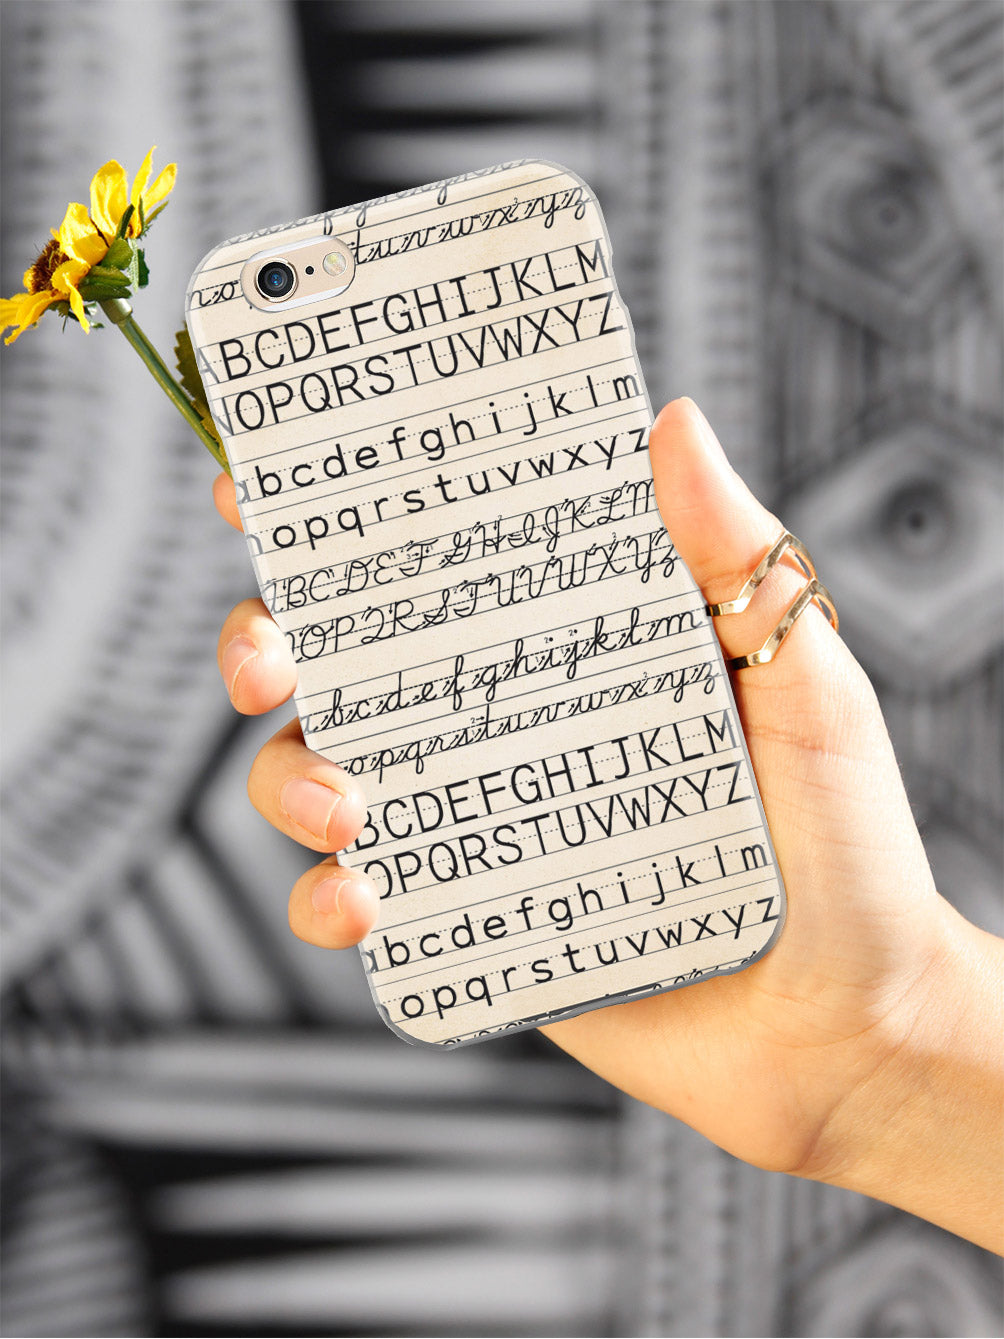 tuvwxyz
ABCDEFGHIJKLM
NOPQRSTUVWXYZ
abcdefghijklm
nopqrstuvwxyz
ABCDEFGHIJKLM
NOPQRSTUVWXYZ
abcdefghijklm
opqrstuvwxyz
BCDEFGHIJKLM
OPQRSTUVWXYZ
abcdefghijklm
opqrstuvwxyz